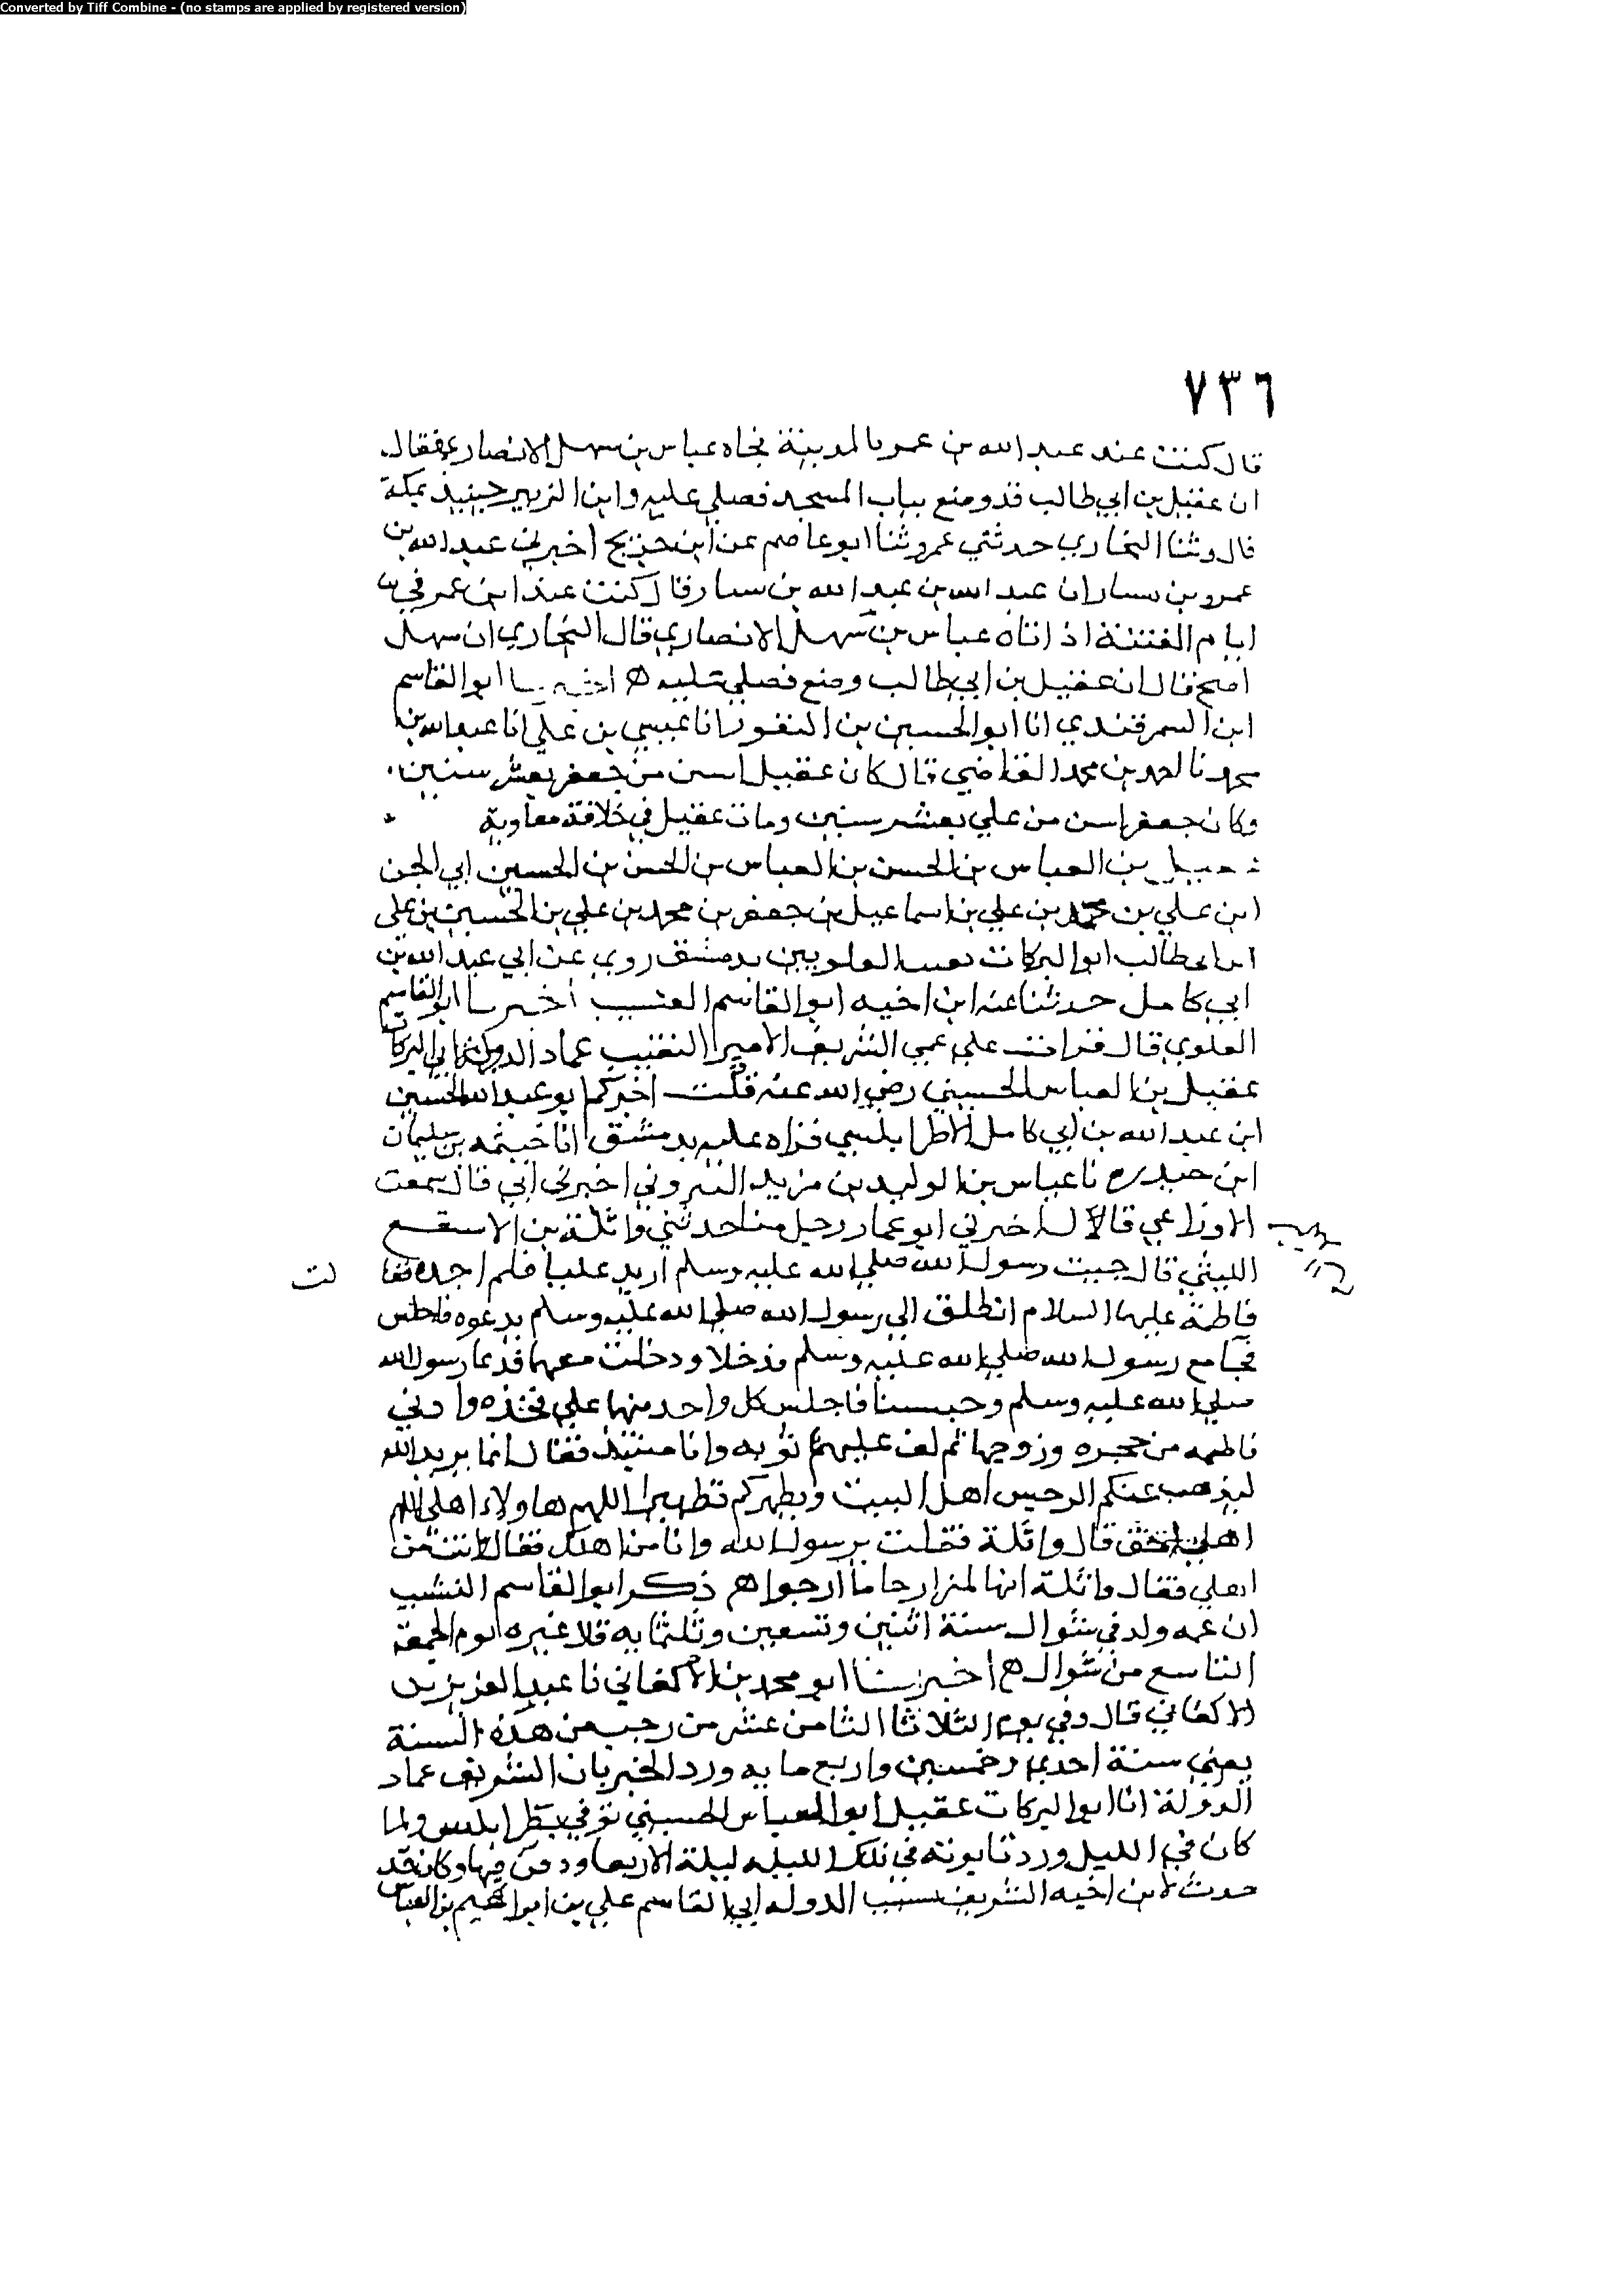 Converted by Tiff Combine - (no stamps are applied by registered version)
٧٣٦
قال كنت عند عبد الله بن عمر بالمدينة فجاه عباس بن سهل الانصاري فقال
ان عقيل بن ابي طالب قد وضع بباب المسجد فصلي عليه وابن الزبير حينيذ بمكة
قال وثنا البخاري حدثني عمرو ثنا ابو عاصم عن ابن جريج اخبرني عبد الله بن
عمرو بن يسار ان عبد الله بن عبد الله بن يسار قال كنت عند ابن عمر في
ايام الفتنة اذ اتاه عباس بن سهل الانصاري قال البخاري ان سهل
اصح قال ان عقيل بن ابي طالب وضع فصلي عليه ه ابو القاسم
ابن السمرقندي انا ابو الحسين بن النقور انا عيسي بن علي انا عبد الله بن
محمد نا احمد بن محمد القاضي قال كان عقيل اسن من جعفر بعشر سنين
وكان جعفر اسن من علي بعشر سنين ومات عقيل في خلافة معاوية
عقيل بن العباس بن الحسن بن العباس بن الحسن بن الحسين ابي الجن
ابن علي بن محمد بن علي بن اسماعيل بن جعفر بن محمد بن علي بن الحسين بن علي
ابن ابي طالب ابو البركات نقيب العلويين بدمشق روي عن ابي عبد الله بن
ابي كامل حدثنا عنه ابن اخيه ابو القاسم النسيب اخبرنا ابو القاسم
العلوي قال قرات علي عمي الشريف الامير النقيب عماد الدولة ابي البركات
عقيل بن العباس الحسيني رضي الله عنه قلت اخبركم ابو عبد الله الحسين
ابن عبد الله بن ابي كامل الاطرابلسي قراه عليه بدمشق انا خيثمه بن سليمان
ابن حيدره نا عباس بن الوليد بن مزيد البيروني اخبرني ابي قال سمعت
الاوزاعي قال اخبرني ابو عمار رجل منا حدثني واثلة بن الاسقع
الليثي قال جيت رسول الله صلي الله عليه وسلم اريد عليا فلم اجده فقا لت
فاطمة عليها السلام انطلق الي رسول الله صلي الله عليه وسلم يدعوه فاجلس
فجا مع رسول الله صلي الله عليه وسلم فدخلا ودخلت معهما فدعا رسول الله
صلي الله عليه وسلم وحسنا فاجلس كل واحد منهما علي فخذه وادني
فاطمه من حجره وزوجها ثم لف عليهم ثوبه وانا منتبذ فقال انما يريد الله
ليذهب عنكم الرجس اهل البيت ويطهركم تطهيرا اللهم هاولاء اهلي اللهم
اهلي احق قال واثلة فقلت يرسول الله وانا من اهلك فقال وانت من
اهلي فقال واثلة انها لمن ارجا ما ارجوا ه ذكر ابو القاسم النسيب
ان عمه ولد في شوال سنة اثنين وتسعين وثلثمايه قلا غيره يوم الجمعة
التاسع من شوال ه اخبرنا ابو محمد بن الاكفاني نا عبد العزيز بن
الاكفاني قال وفي يوم الثلاثا الثامن عشر من رجب من هذه السنة
يعني سنة احدي وخمسين واربع مايه ورد الخبر بان الشريف عماد
الدولة انا ابو البركات عقيل ابو العباس الحسيني توفي بطرابلس ولما
كان في الليل ورد تابوته في تلك الليله ليلة الاربعا ودفن فيها وكان قد
حدث لابن اخيه الشريف نسيب الدوله ابي القاسم علي بن ابراهيم بن العباس